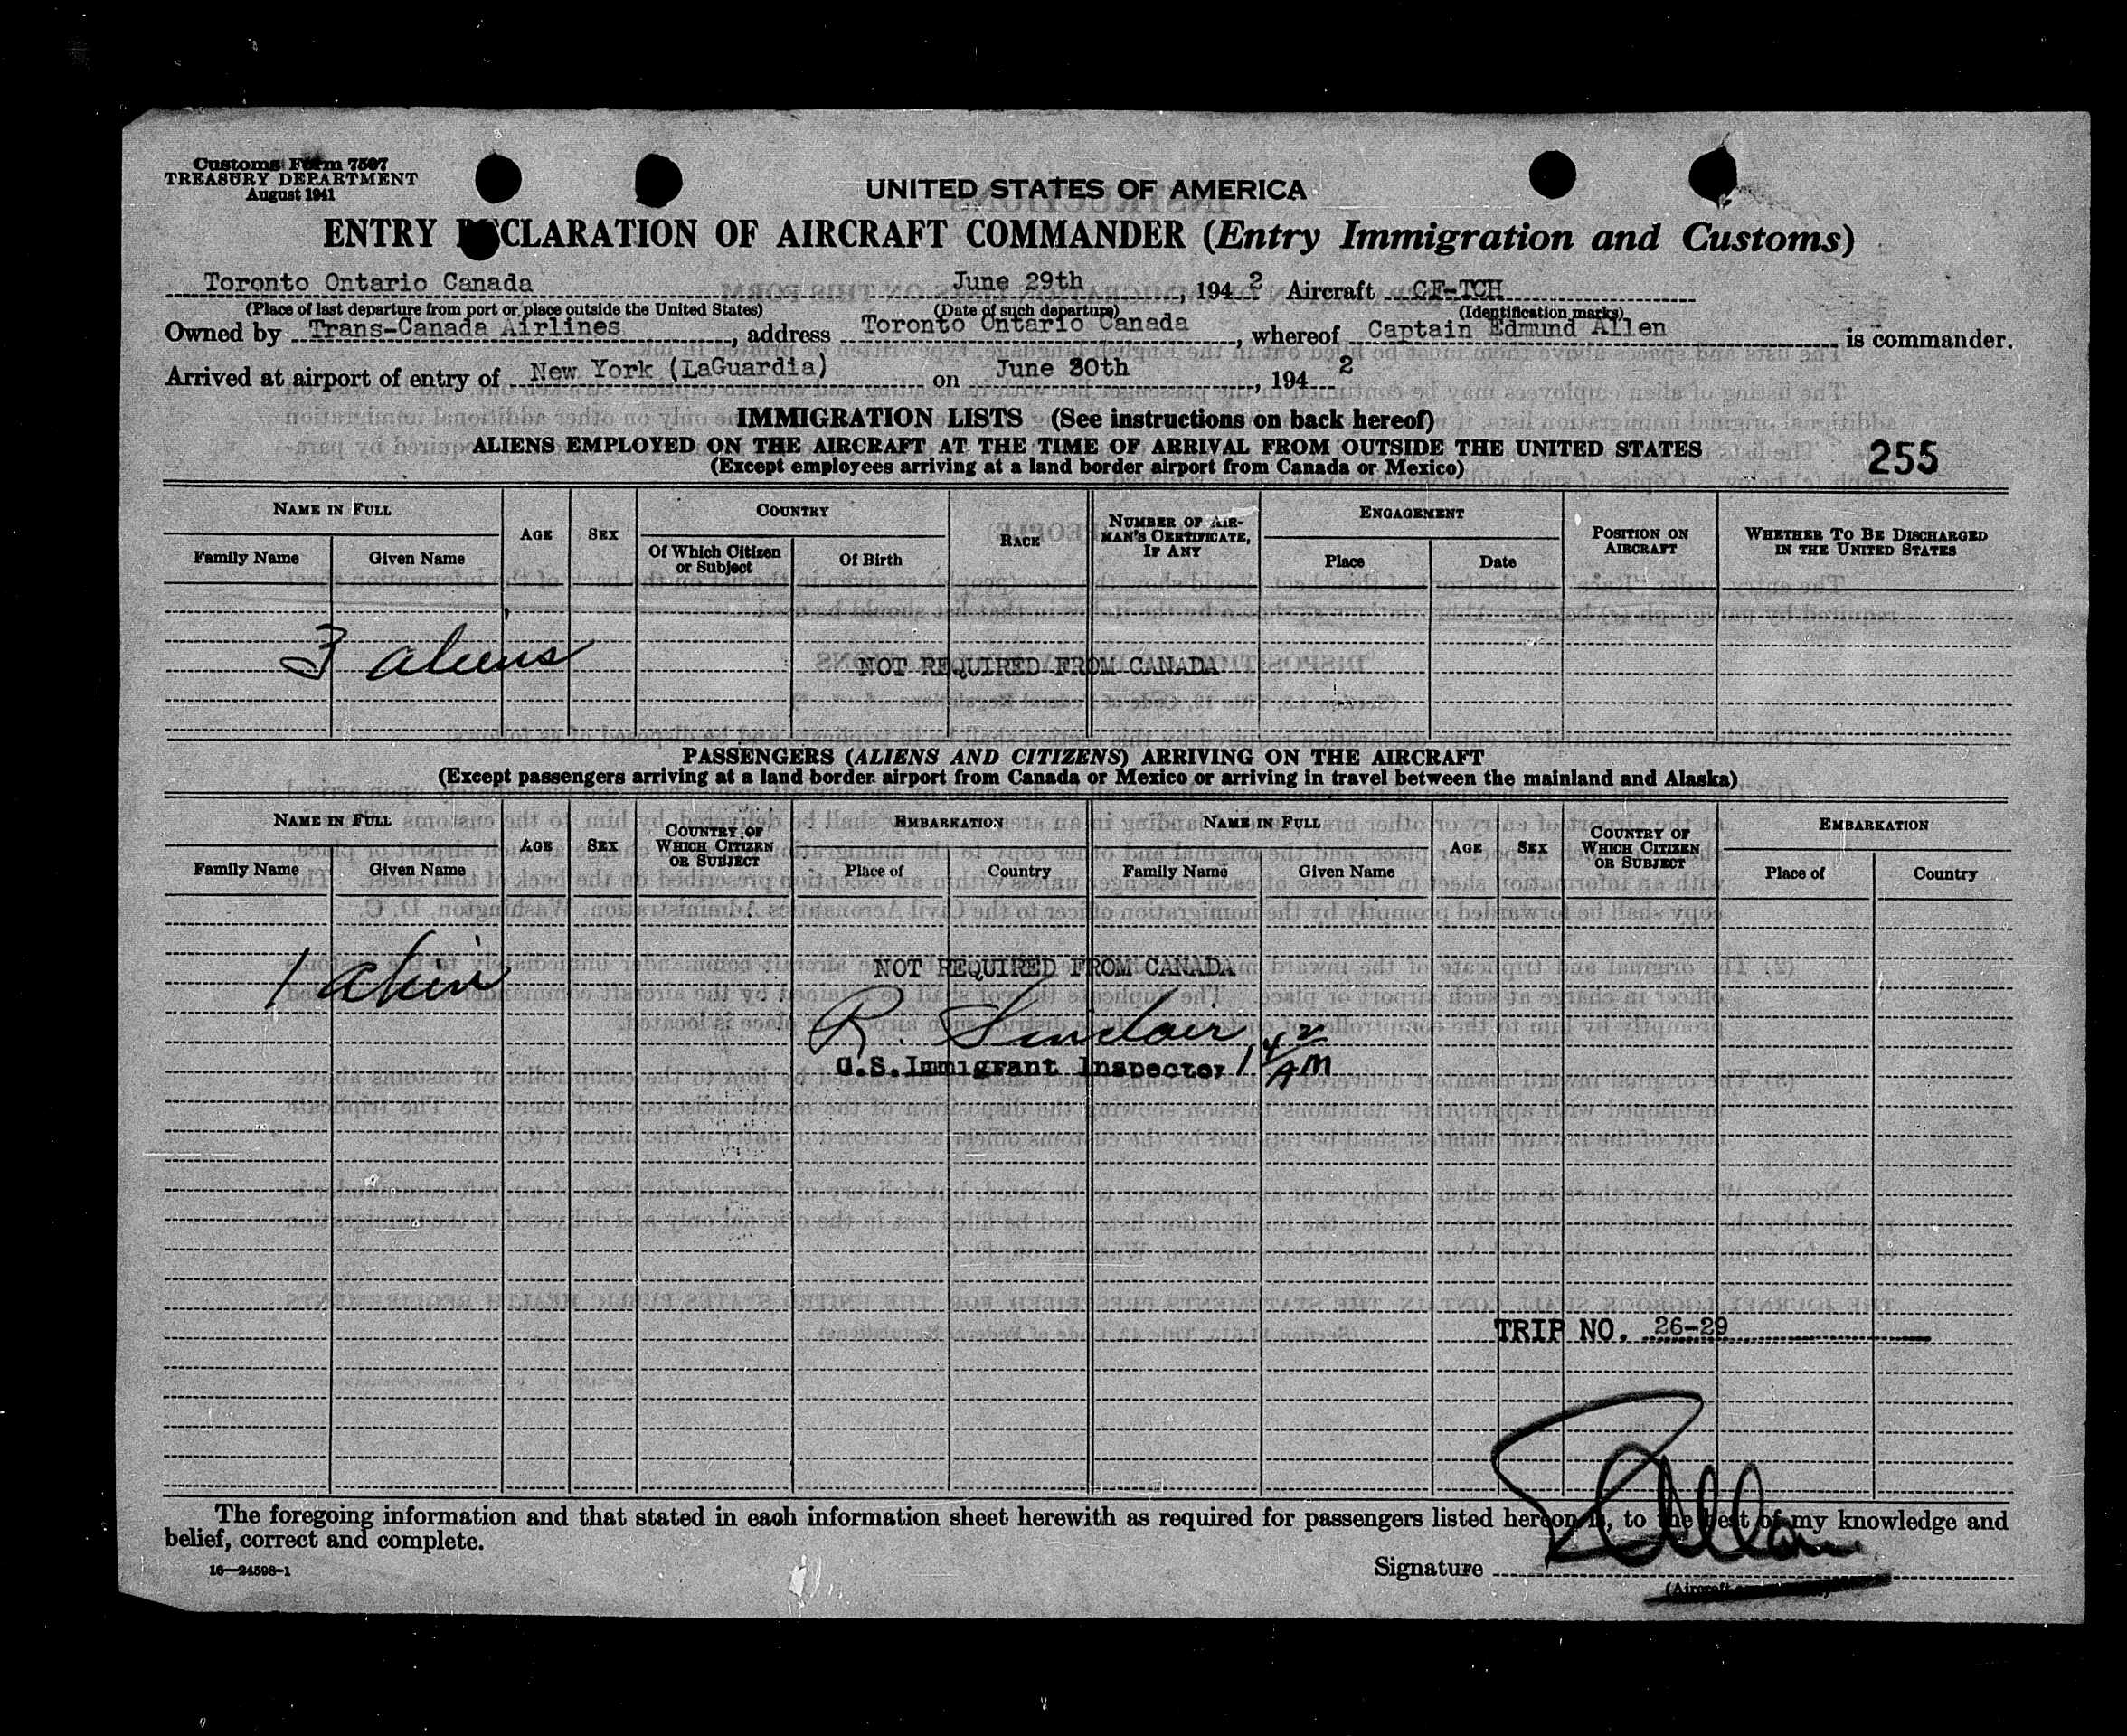 Customs Form 7507
TREASURY DEPARTMENT
August 1941
UNITED STATES OF AMERICA
ENTRY DECLARATION OF AIRCRAFT COMMANDER (Entry Immigration and Customs)
Toronto Ontario Canada June 29th, 1942 Aircraft CF-TCH
(Place of last departure from port or place outside the United States) (Date of such departure) (Identification marks)
Owned by Trans-Canada Airlines, address Toronto Ontario Canada, whereof Captain Edmund Allen is commander.
Arrived at airport of entry of New York (LaGuardia) on June 30th, 1942
IMMIGRATION LISTS (See instructions on back hereof)
ALIENS EMPLOYED ON THE AIRCRAFT AT THE TIME OF ARRIVAL FROM OUTSIDE THE UNITED STATES
(Except employees arriving at a land border airport from Canada or Mexico)
255
NAME IN FULL AGE SEX COUNTRY RACE NUMBER OF AIRMAN'S CERTIFICATE, IF ANY ENGAGEMENT POSITION ON AIRCRAFT WHETHER TO BE DISCHARGED IN THE UNITED STATES
Family Name Given Name Of Which Citizen or Subject Of Birth Place Date
3 aliens NOT REQUIRED FROM CANADA
PASSENGERS (ALIENS AND CITIZENS) ARRIVING ON THE AIRCRAFT
(Except passengers arriving at a land border airport from Canada or Mexico or arriving in travel between the mainland and Alaska)
NAME IN FULL AGE SEX COUNTRY OF WHICH CITIZEN OR SUBJECT EMBARKATION NAME IN FULL AGE SEX COUNTRY OF WHICH CITIZEN OR SUBJECT EMBARKATION
Family Name Given Name Place of Country Family Name Given Name Place of Country
1 alien NOT REQUIRED FROM CANADA
R. Sinclair
U.S. Immigrant Inspector 1 42 AM
TRIP NO. 26-29
The foregoing information and that stated in each information sheet herewith as required for passengers listed hereon is, to the best of my knowledge and
belief, correct and complete.
16—24598-1
Signature E Allen
(Aircraft